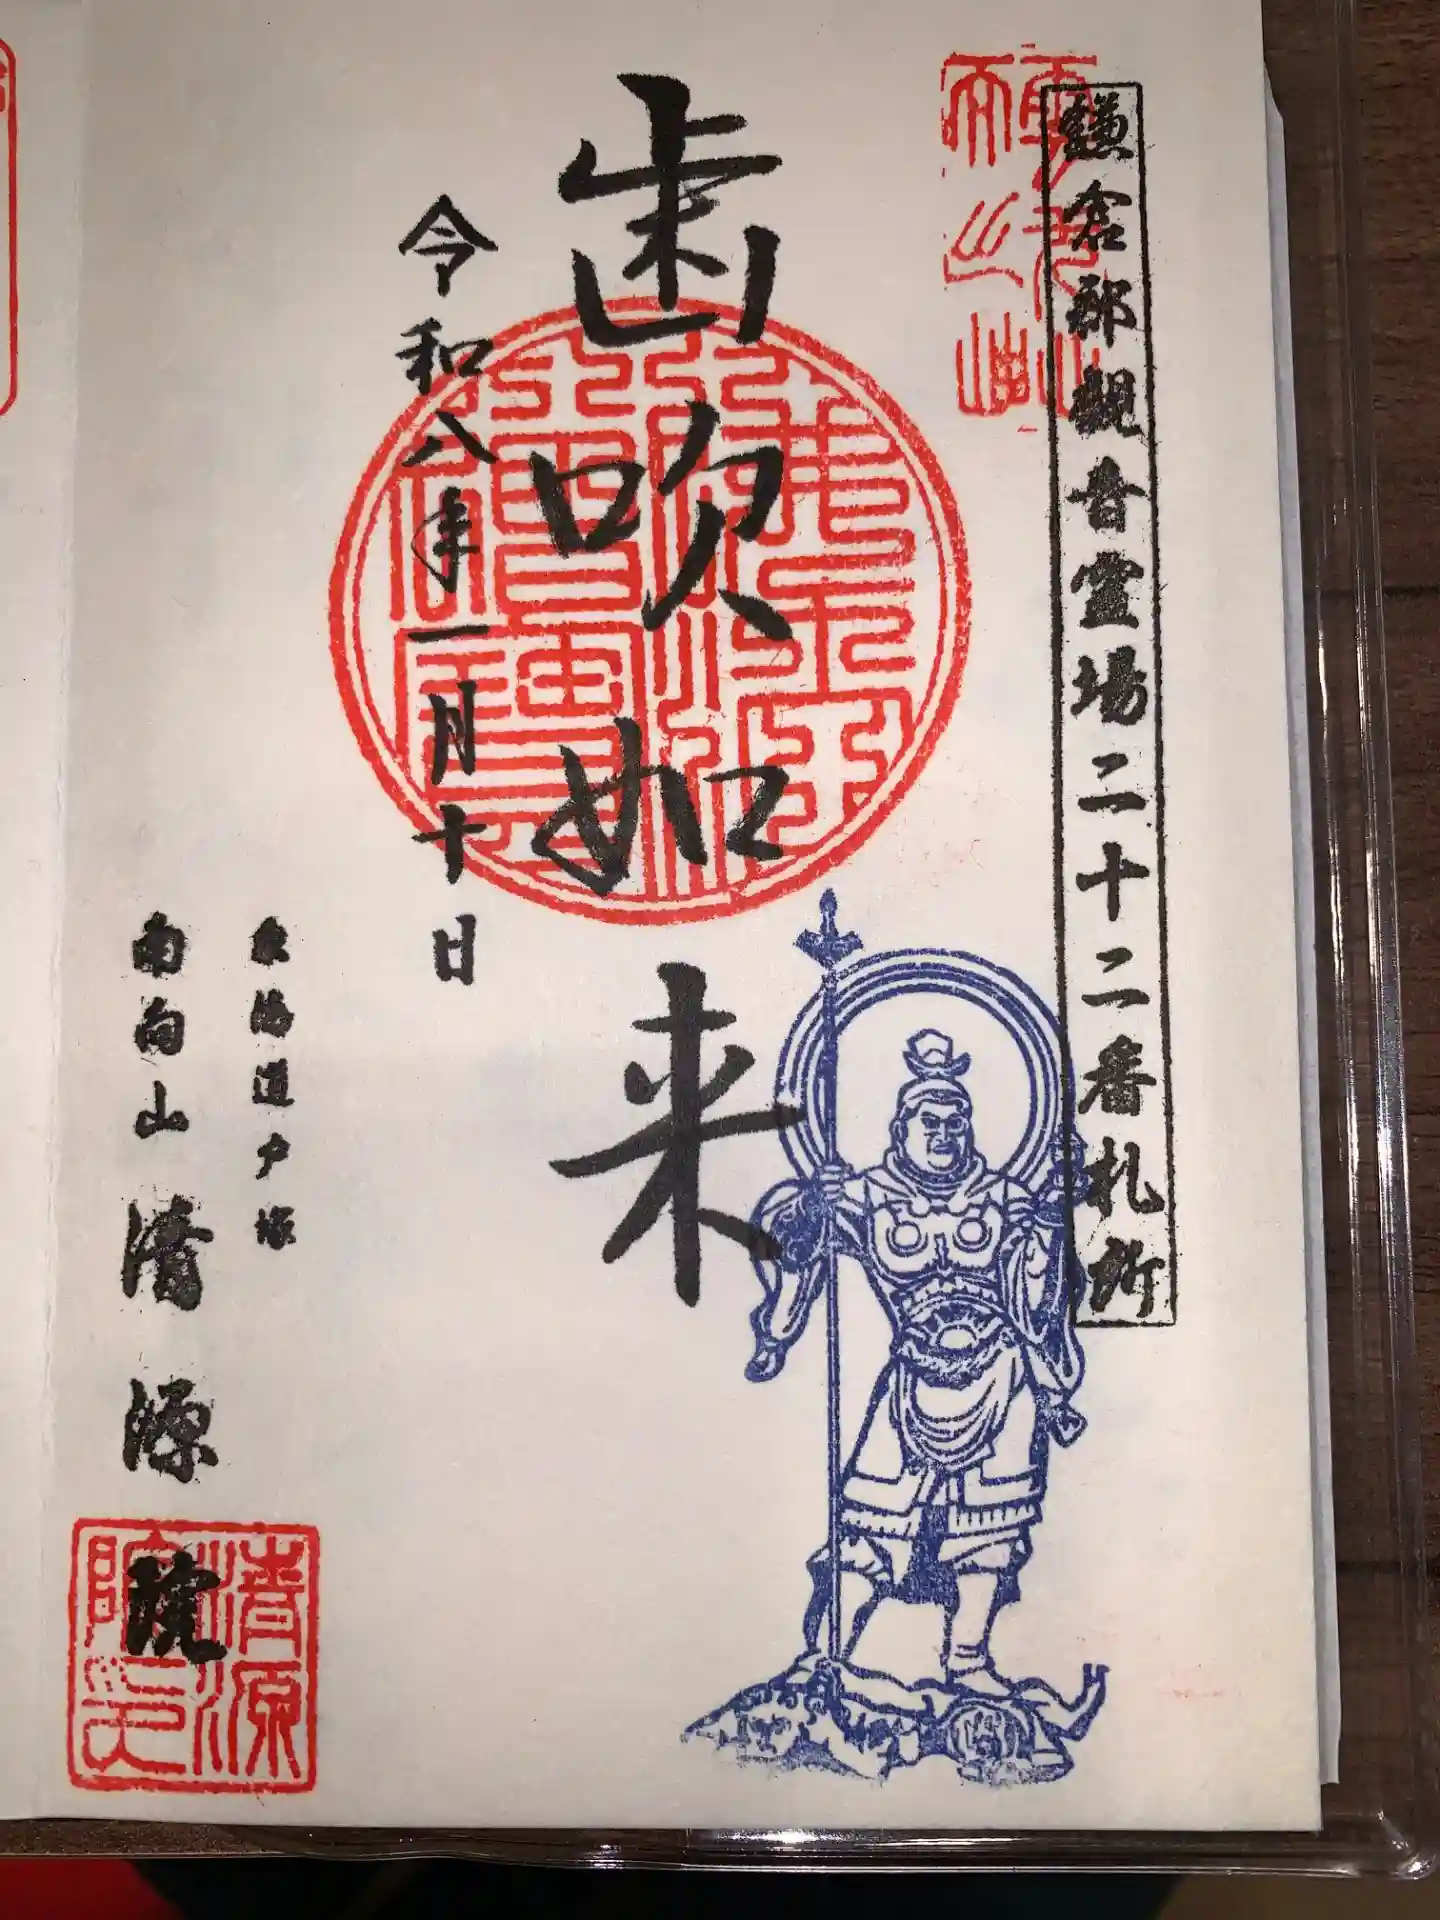 鎌倉郡觀音靈場二十二番札所
歯吹如来
令和八年一月十日
東海道戸塚
南向山清源院
清源院印